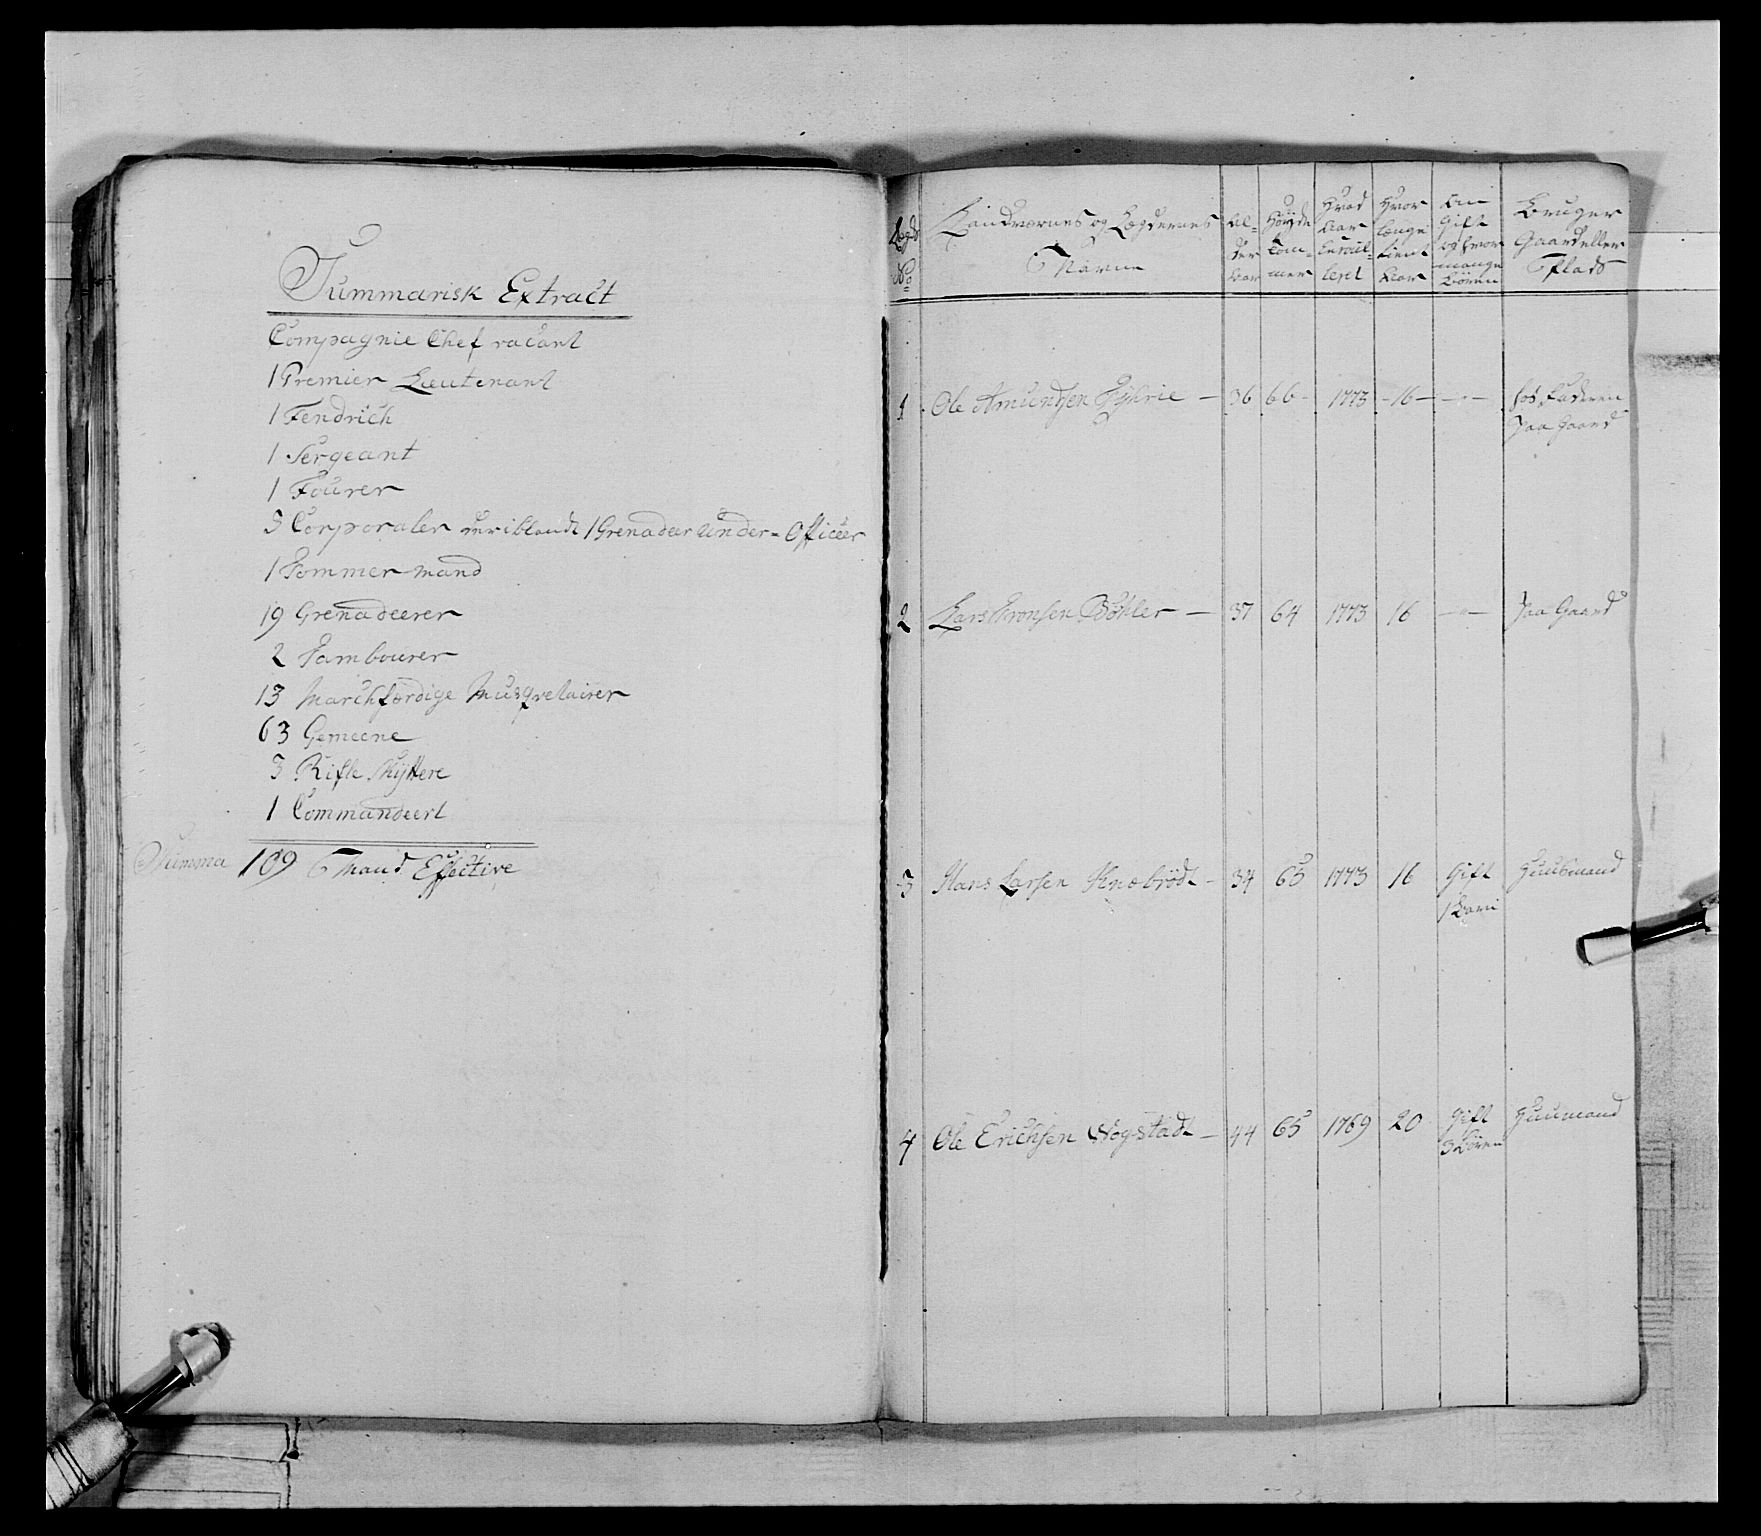 Summarisk Extract
Compagnie Chef vacant
1 Premier Lieutenant
1 Fendrich
1 Sergeant
1 Fourer
5 Corporaler deriblandt 1 Grenadeer Under-Officeer
1 Tømmer-mand
19 Grenadeerer
2 Tambourer
13 Marchfærdige Musqvetairer
63 Gemeene
3 Rifle Skyttere
1 Commandeert
Summa 109 Mand Effective
Lægd No
Landværnes og Lægdernes Navne
Al-der Aar
Høyde Tom-mer
Hvad Aar Enroul-leret
Hvor længe tient Aar
Om Gift og hvor mange Børn
Bruger Gaard eller Plads
1 Ole Amundsen — 36 66 - 1773 - 16 — - " - hos Faderen
paa Gaard
2 Lars Bøhler — 37 64 1773 16 - " - paa Gaard
3 Hans Larsen Knæbrødt - 34 65 1773 16 Gift Huusmand
1 Barn
4 Ole Erichsen Hogstadt — 44 65 1769 20 Gift Huusmand
3 Børn